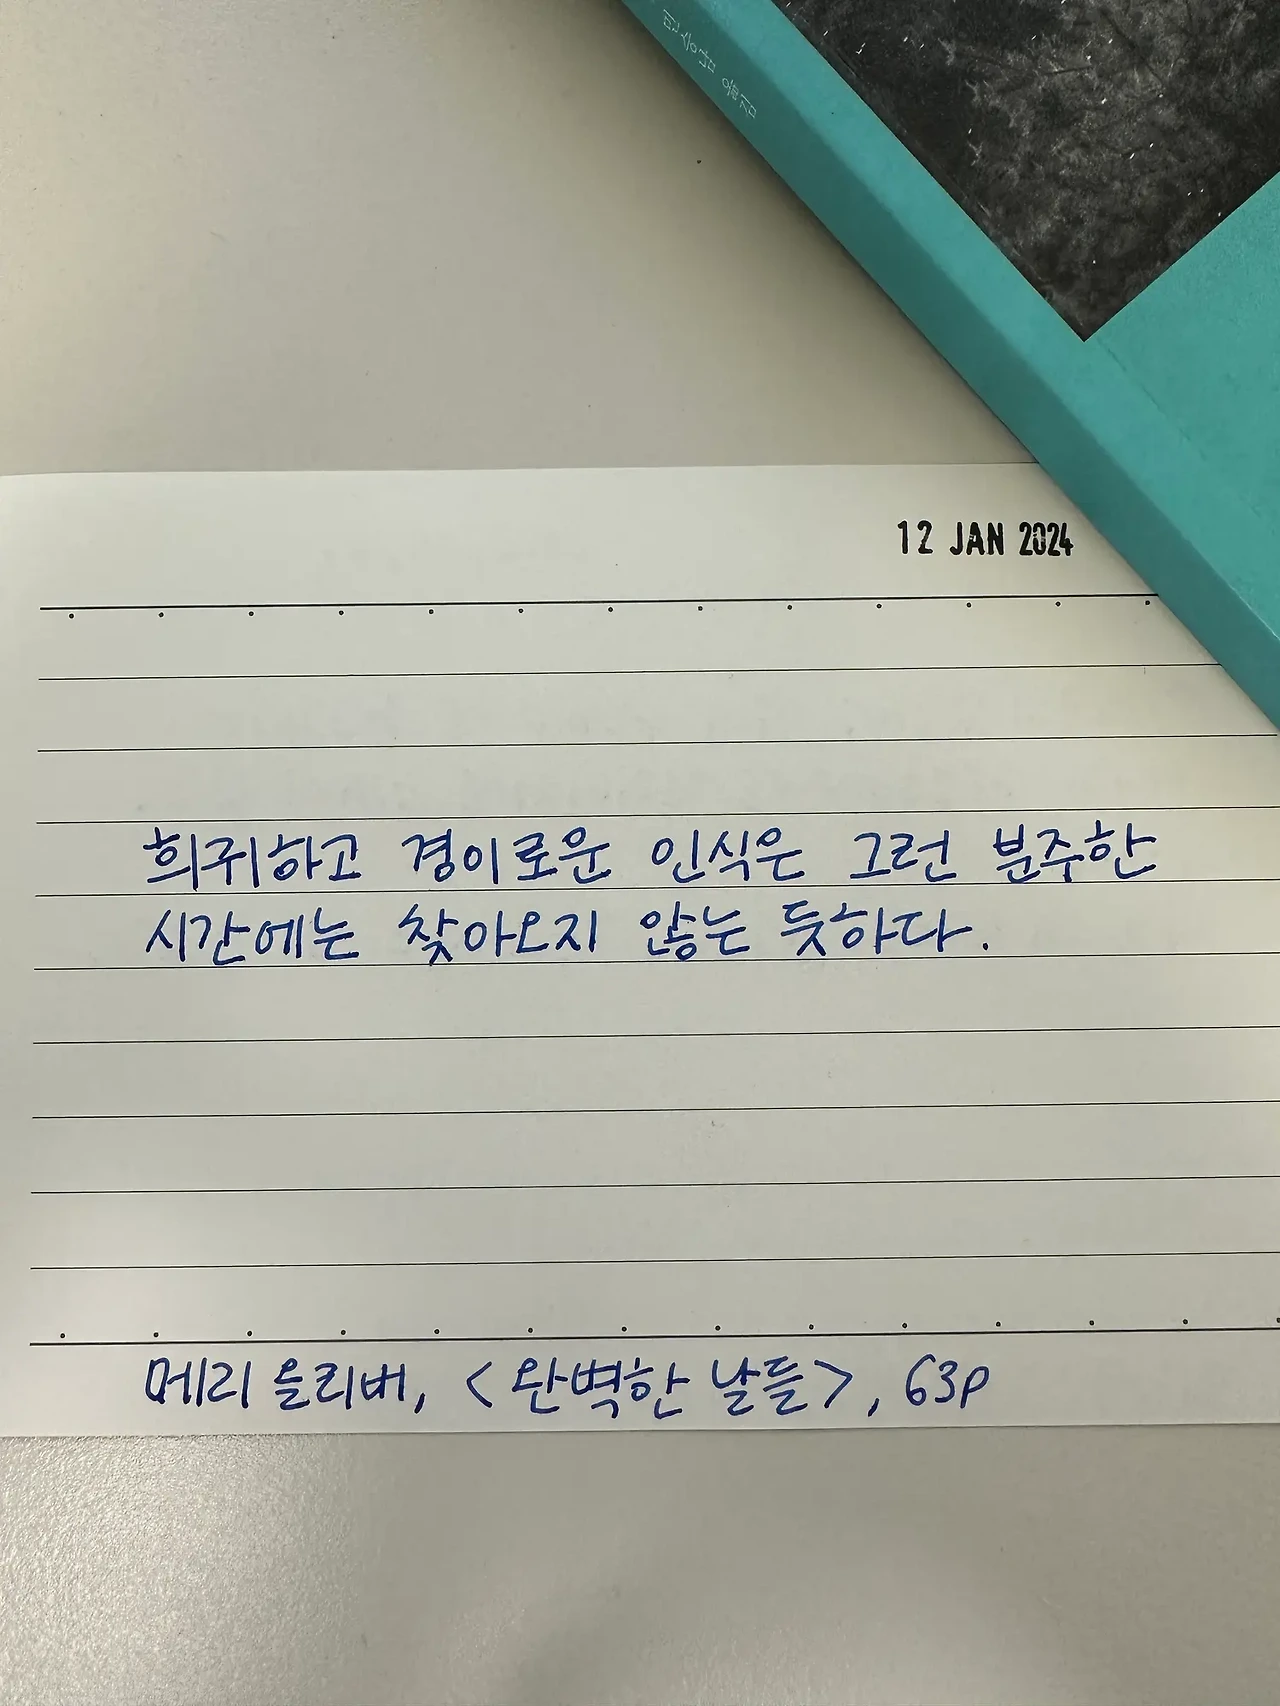 민승남 옮김
12 JAN 2024
희귀하고 경이로운 인식은 그런 분주한
시간에는 찾아오지 않는 듯하다.
메리 올리버, <완벽한 날들>, 63p